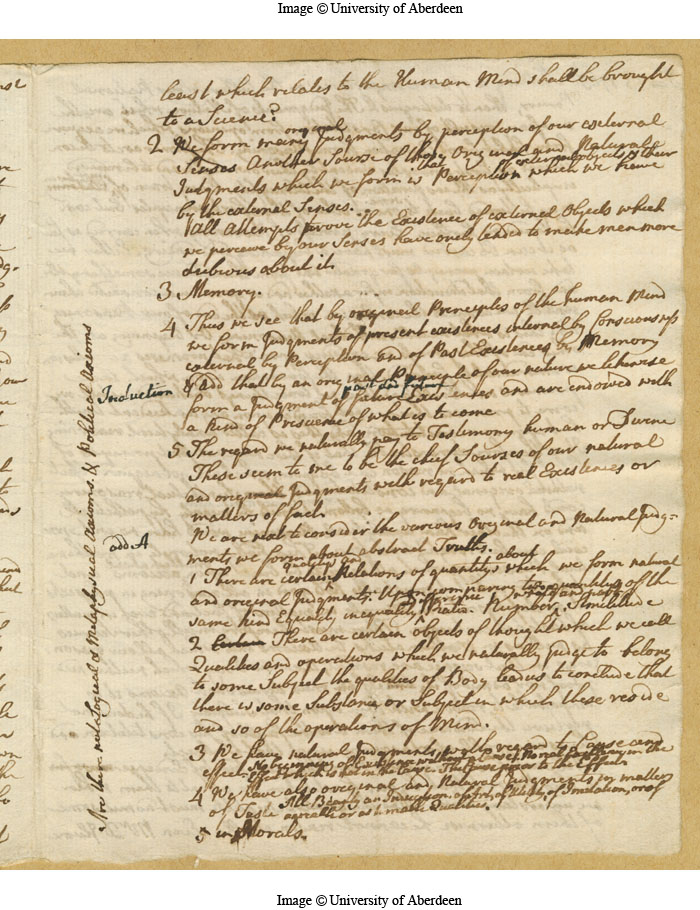 Image © University of Aberdeen
least which relates to the Human Mind shall be brought
to a Science?
original
2 We form many Judgments by perception of our external
Senses Another Sourse of those Original and Natural
that of external objects & their
Judgments which we form is Perception which we have
by the external Senses.
All Attempts prove the Existence of external Objects which
we perceive by our Senses have only tended to make men more
dubious about it.
3 Memory.
4 Thus we see that by original Principles of the human Mind
we form Judgments of present existences internal by Consciousness
external by Perception and of Past Existences by Memory
I add that by an original Principle of our nature we likewise
past and future
Induction
form a Judgment of future Existences and are endowed with
a kind of Prescience of what is to come
5 The regard we naturally pay to Testimony human or Divine
These seem to me to be the chief Sourses of our natural
and original Judgments with regard to real Existences or
matters of fact.
We are next to consider the various Original and Natural Judg-
add A
ments we form about abstract Truths.
1 There are certain Relations of quantity about which we form natural
and original Judgments. Upon comparing two quantities of the
same kind Equality, inequality, Ratio. Number, Similitude
2 Certain There are certain objects of thought which we call
Qualities and operations which we naturally judge to belong
to some Subject the qualities of Body lead us to conclude that
there is some Substance or Subject in which these reside
and so of the operations of Mind.
3 We have natural Judgments with regard to Cause and
No beginning of Existence without a Cause. in the
effect. effect which is not in the Cause. to the Effect.
4 We have also original and Natural Judgments in matters
of Taste All Beauty of Imitation, or of
5 in Morals.
Are there not Logical or Metaphysical Axioms, & Political Axioms
Image © University of Aberdeen